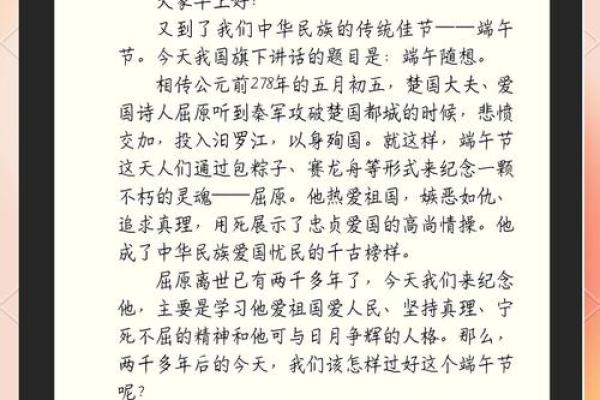 大家早上好！
又到了我们中华民族的传统佳节——端午
节。今天我国旗下讲话的题目是：端午随想。
相传公元前278年的五月初五，楚国大夫、爱
国诗人屈原听到秦军攻破楚国都城的时候，悲愤
交加，投入汨罗江，以身殉国。就这样，端午节
这天人们通过包粽子、赛龙舟等形式来纪念一颗
不朽的灵魂——屈原。他热爱祖国，嫉恶如仇、
追求真理，用死展示了忠贞爱国的高尚情操。他
成了中华民族爱国忧民的千古榜样。
屈原离世已有两千多年了，今天我们来纪念
他，主要是学习他爱祖国爱人民、坚持真理、宁
死不屈的精神和他可与日月争辉的人格。那么，
两千多年后的今天，我们该怎样过好这个端午节
呢？